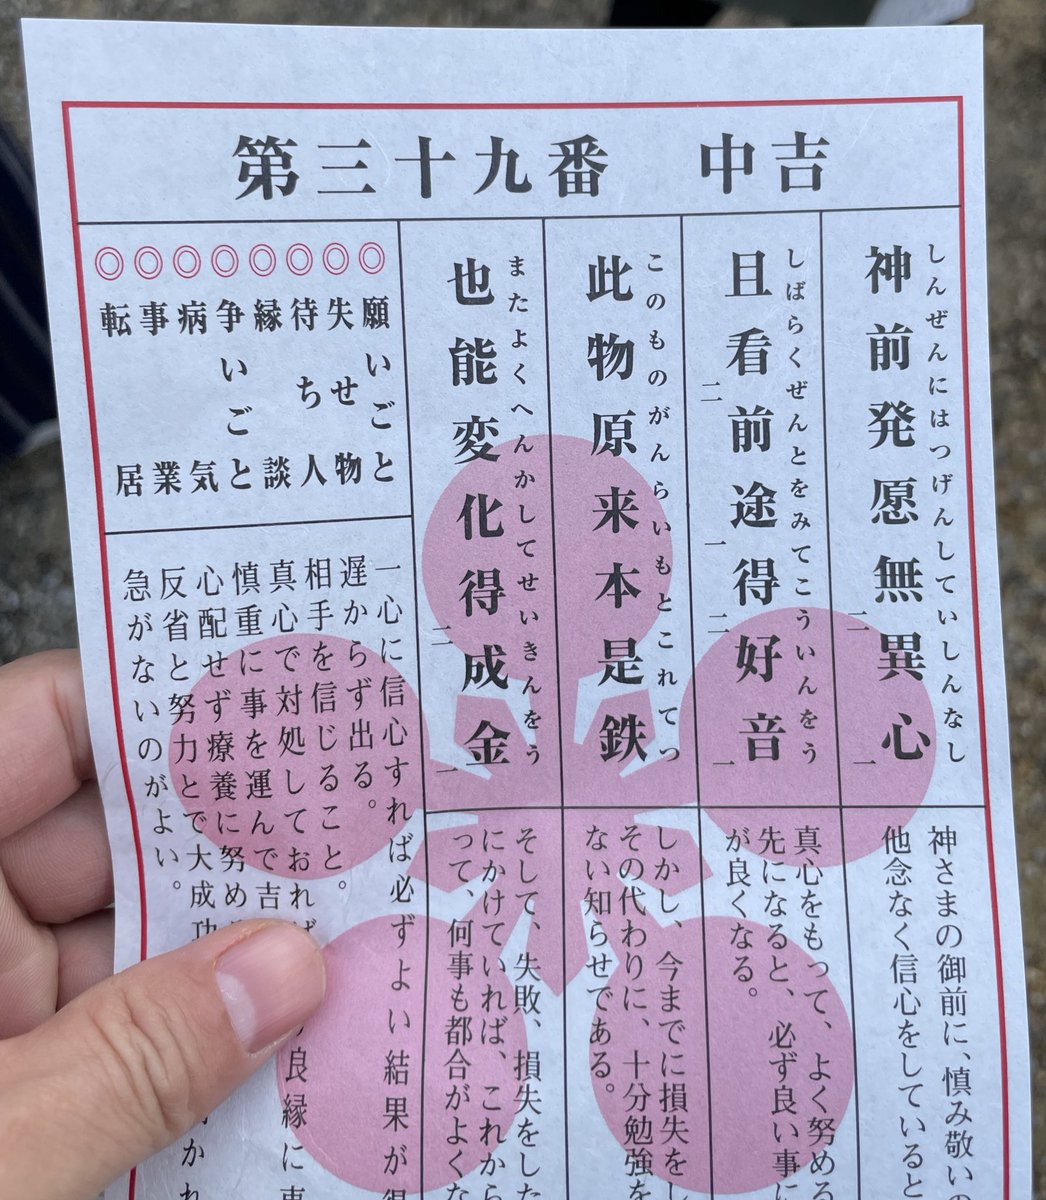 第三十九番 中吉
しんぜんにはつげんしていしんなし
神前発愿無二異心一
しばらくぜんとをみてこういんをう
且看二前途一得二好音一
このものがんらいもとこれてつ
此物原来本是鉄
またよくへんかしてせいきんをう
也能変化得二成金一
◎願いごと
◎失せ物
◎待ち人
◎縁談
◎争いごと
◎病気
◎事業
◎転居
神さまの御前に、慎み敬い
他念なく信心をしていると
真心をもって、よく努める
先になると、必ず良い事に
が良くなる。
しかし、今までに損失をし
その代わりに、十分勉強を
ない知らせである。
そして、失敗、損失をした
にかけていれば、これから
って、何事も都合がよくな
一心に信心すれば必ずよい結果が得
遅からず出る。
相手を信じること。
真心で対処しておれば 良縁に
慎重に事を運んで吉
心配せず療養に努め
反省と努力とで大成功 かれ
急がないのがよい。